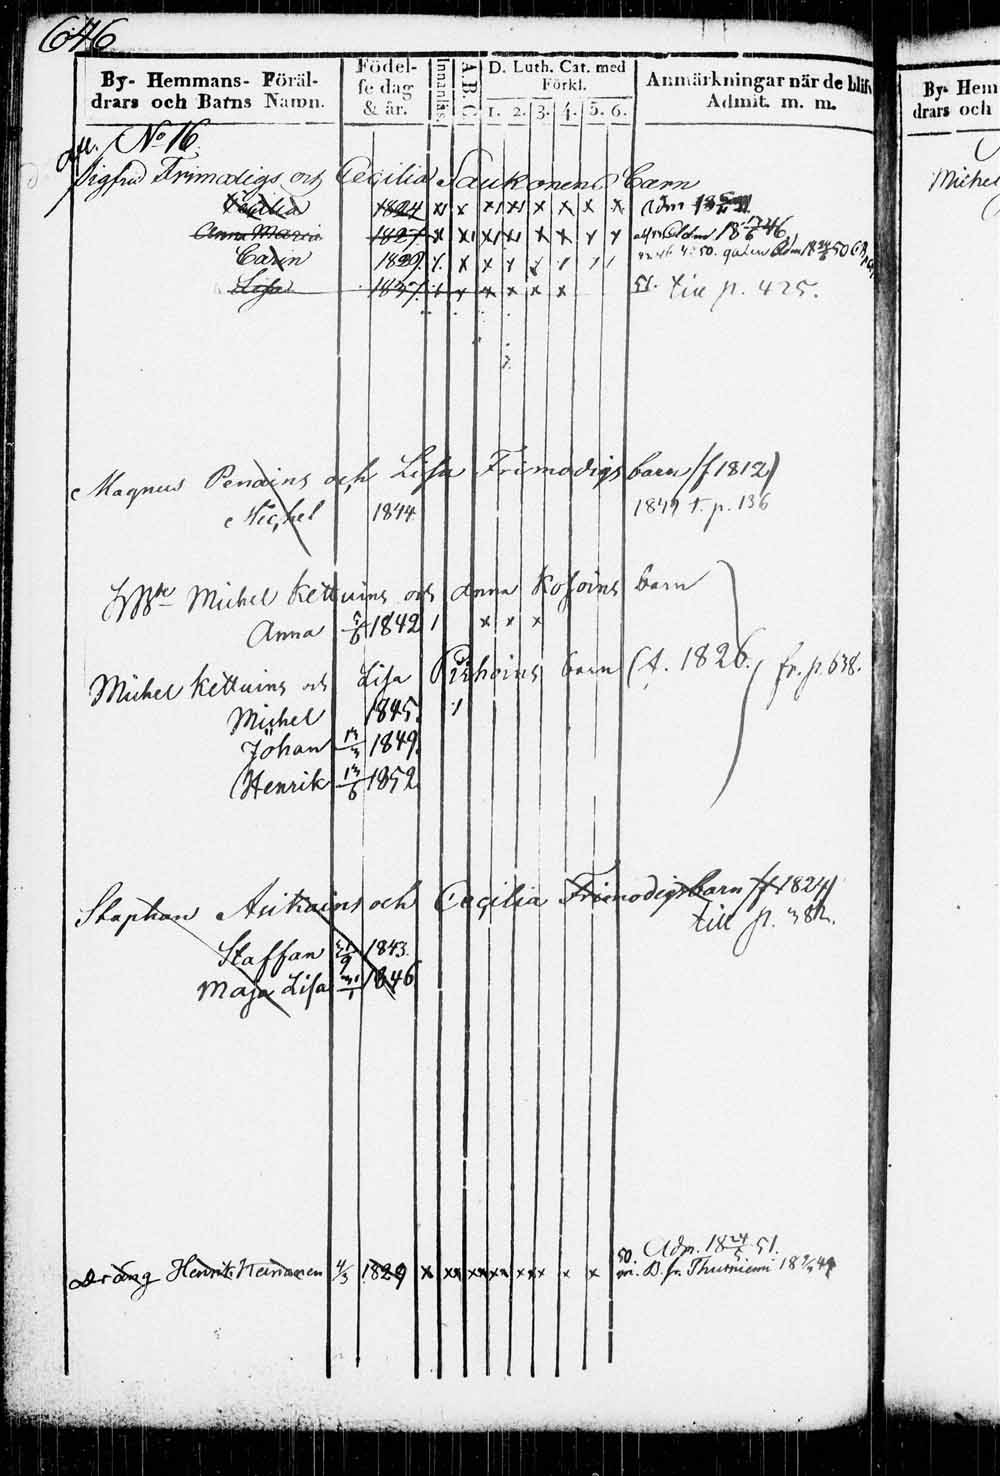 646
By- Hemmans- Föräl-
drars och Barns Namn.
Födel-
se dag
& år.
Innanläs.
A.B.C.
D. Luth. Cat. med
Förkl.
1. 2. 3. 4. 5. 6.
Anmärkningar när de blifv
Admit. m. m.
By- Hem
drars och
No 16.
Sigfrid Frimodigs och Cecilia Saukonens Barn
Michel
Cecilia 1824 x x x x x x x x Adm 18
Anna Maria 1827 x x x x x x x x Adm 18 46
Carin 1829. x x x 50
Lisa 1837. x x x x x 51. till p. 425.
Magnus Penains och Lisa Frimodigs barn (f 1812)
Michel 1844 1849 t. p. 136
Michel Kettuins och Anna Kosoins barn
Anna 5/6 1842 x x x
Michel Kettuins och Lisa barn (f. 1826.) fr. p. 638.
Michel 1845.
Johan 13/3 1849.
Henrik 13/6 1852
Staphan Asikains och Cecilia Frimodigs barn (f 1824)
till p. 382.
Staffan 21/9 1843.
Maja Lisa 31/1 1846
50. Adm. 18 24/5 51.
Dräng Henrik Heinonen 4/3 1829 x xx xx xx xxx x x fr. Thurniemi 18 49